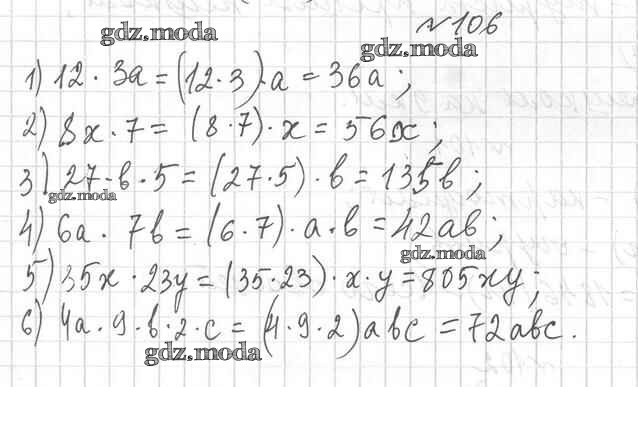 №106
gdz.moda
gdz.moda
1) 12 · 3a = (12 · 3) · a = 36a ;
2) 8x · 7 = (8 · 7) · x = 56x ;
3) 27 · b · 5 = (27 · 5) · b = 135b ;
gdz.moda
4) 6a · 7b = (6 · 7) · a · b = 42ab ;
gdz.moda
5) 35x · 23y = (35 · 23) · x · y = 805xy ;
6) 4a · 9 · b · 2 · c = (4 · 9 · 2) abc = 72abc .
gdz.moda